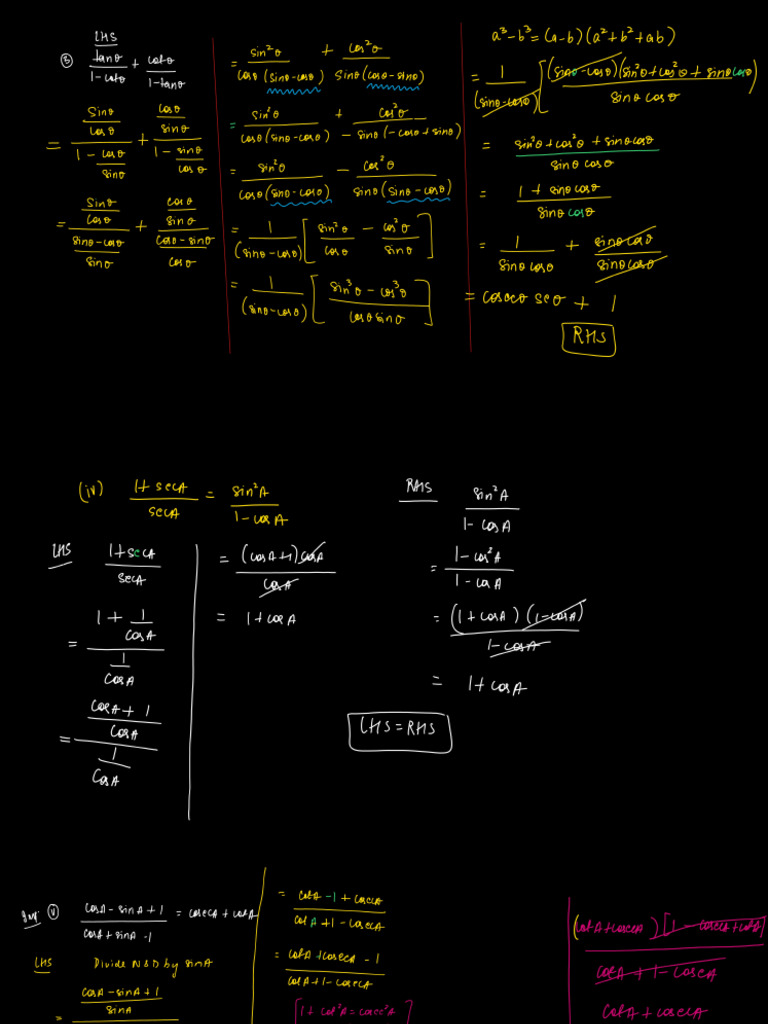 LHS
③ tanθ/(1-cotθ) + cotθ/(1-tanθ)
= (sinθ/cosθ)/(1 - cosθ/sinθ) + (cosθ/sinθ)/(1 - sinθ/cosθ)
= (sinθ/cosθ)/((sinθ-cosθ)/sinθ) + (cosθ/sinθ)/((cosθ-sinθ)/cosθ)
= sin²θ/(cosθ(sinθ-cosθ)) + cos²θ/(sinθ(cosθ-sinθ))
= sin²θ/(cosθ(sinθ-cosθ)) + cos²θ/(-sinθ(-cosθ+sinθ))
= sin²θ/(cosθ(sinθ-cosθ)) - cos²θ/(sinθ(sinθ-cosθ))
= 1/(sinθ-cosθ) [sin²θ/cosθ - cos²θ/sinθ]
= 1/(sinθ-cosθ) [(sin³θ - cos³θ)/(cosθ sinθ)]
a³-b³=(a-b)(a²+b²+ab)
= 1/(sinθ-cosθ) [(sinθ-cosθ)(sin²θ+cos²θ+sinθcosθ)/(sinθ cosθ)]
= (sin²θ+cos²θ+sinθcosθ)/(sinθ cosθ)
= (1+sinθcosθ)/(sinθcosθ)
= 1/(sinθcosθ) + sinθcosθ/(sinθcosθ)
= cosecθ secθ + 1
RHS
(iv) (1+secA)/secA = sin²A/(1-cosA)
LHS (1+secA)/secA
= (1+1/cosA)/(1/cosA)
= ((cosA+1)/cosA)/(1/cosA)
= (cosA+1)cosA/cosA
= 1+cosA
RHS sin²A/(1-cosA)
= (1-cos²A)/(1-cosA)
= (1+cosA)(1-cosA)/(1-cosA)
= 1+cosA
LHS=RHS
Imp. ⓥ (cosA-sinA+1)/(cosA+sinA-1) = cosecA+cotA
LHS Divide N&D by sinA
= (cosA-sinA+1)/sinA
= (cotA-1+cosecA)/(cotA+1-cosecA)
= (cotA+cosecA-1)/(cotA+1-cosecA)
[1+cot²A=cosec²A]
(cotA+cosecA)[1-cosecA+cotA]/(cotA+1-cosecA)
cotA+cosecA